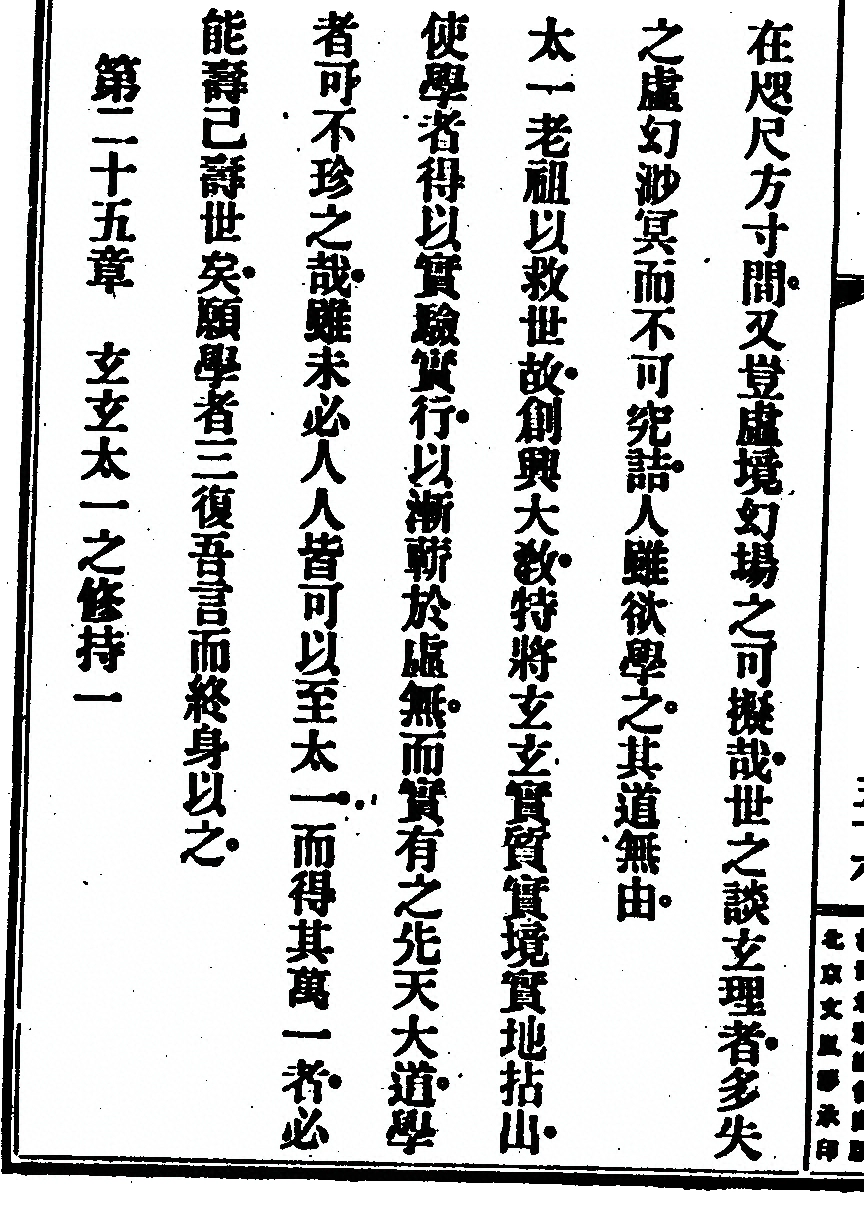 在咫尺方寸間。又豈虛境幻場之可擬哉。世之談玄理者。多失
之虛幻渺冥而不可究詰。人雖欲學之。其道無由。
太一老祖以救世故。創興大敎。特將玄玄實質實境實地拈出。
使學者得以實驗實行。以漸蘄於虛無。而實有之先天大道。學
者可不珍之哉。雖未必人人皆可以至太一。而得其萬一者。必
能壽己壽世矣。願學者三復吾言而終身以之。
第二十五章　玄玄太一之修持一